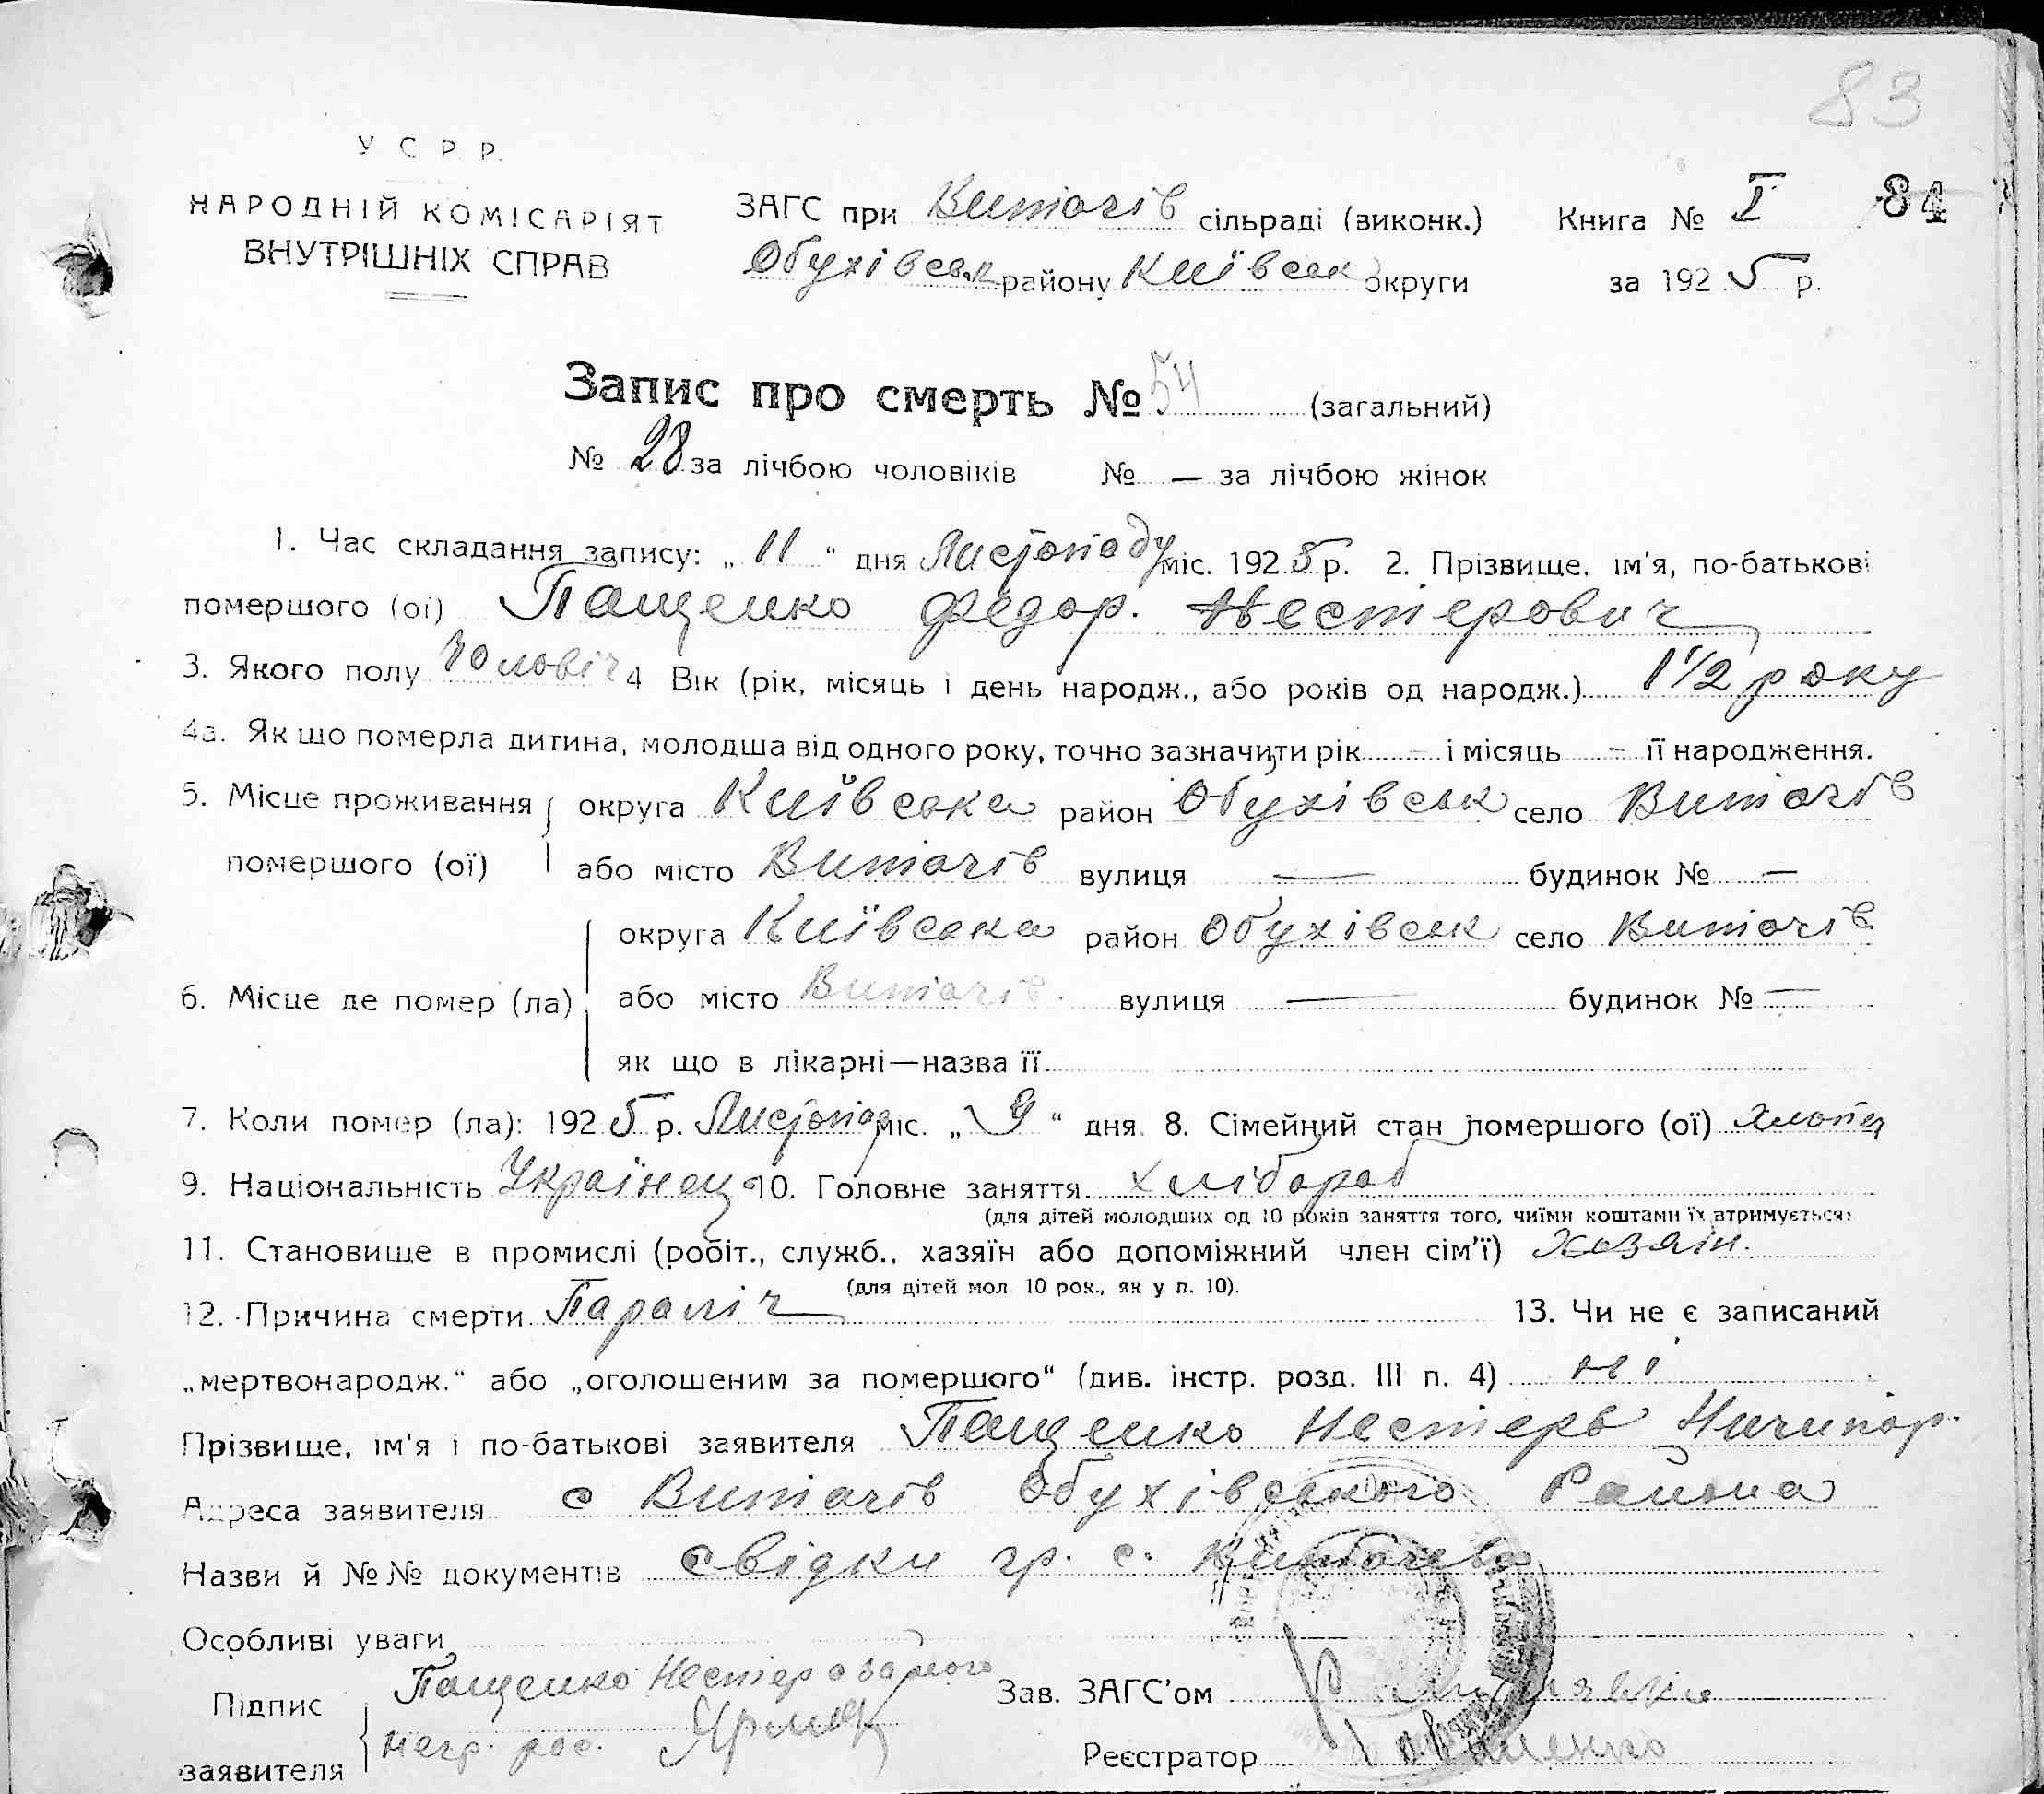 83
У С Р. Р.
НАРОДНІЙ КОМІСАРІЯТ
ВНУТРІШНІХ СПРАВ
ЗАГС при Витачів сільраді (виконк.)
Обухівськ району Київськ округи
Книга № I 84
за 1925 р.
Запис про смерть № 54 (загальний)
№ 28 за лічбою чоловіків № — за лічбою жінок
1. Час складання запису: „ 11 “ дня Листопаду міс. 1925 р. 2. Прізвище, ім'я, по-батькові
помершого (ої) Пащенко Федор. Нестерович
3. Якого полу Чоловіч 4 Вік (рік, місяць і день народж., або років од народж.) 1 1/2 року
4а. Як що померла дитина, молодша від одного року, точно зазначити рік - і місяць - її народження.
5. Місце проживання округа Київська район Обухівськ село Витачів
помершого (ої) або місто Витачів вулиця — будинок № —
округа Київська район Обухівськ село Витачів
6. Місце де помер (ла) або місто Витачів вулиця — будинок № —
як що в лікарні—назва її
7. Коли помер (ла): 1925 р. Листопад міс. „ 9 “ дня. 8. Сімейний стан помершого (ої) Хлопец
9. Національність Українец 10. Головне заняття хлібороб
(для дітей молодших од 10 років заняття того, чиїми коштами їх втримується)
11. Становище в промислі (робіт., служб., хазяїн або допоміжний член сім'ї) Хозяїн.
(для дітей мол 10 рок., як у п. 10).
12. Причина смерти Параліч 13. Чи не є записаний
„мертвонародж.“ або „оголошеним за помершого“ (див. інстр. розд. III п. 4) ні
Прізвище, ім'я і по-батькові заявителя Пащенко Нестеръ Ничипор.
Адреса заявителя с Витачів Обухівського Района
Назви й №№ документів свідки гр. с. Витачева
Особливі уваги
Підпис заявителя Пащенко Нестер а за його
негр. рос. Ярмак
Зав. ЗАГС'ом
Реєстратор